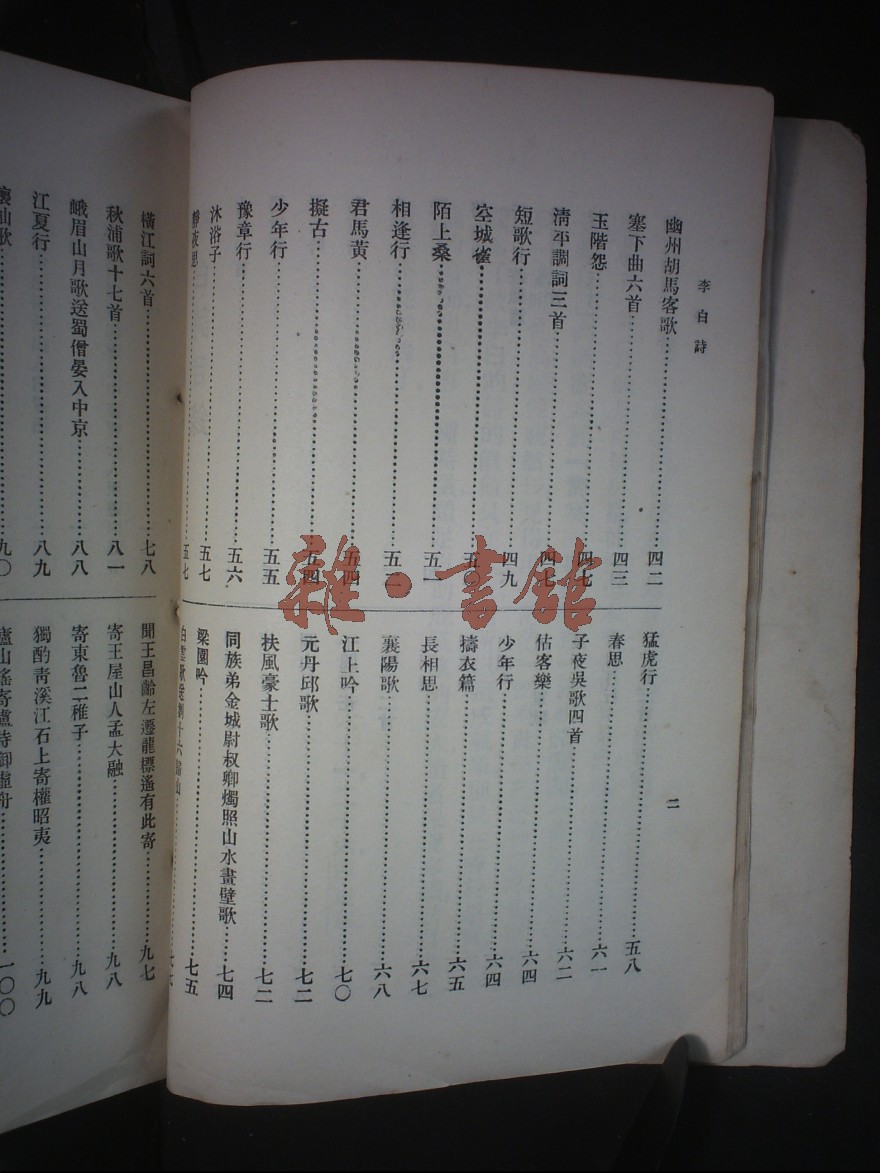 李白詩
幽州胡馬客歌……四二
塞下曲六首……四三
玉階怨……四七
清平調詞三首……四七
短歌行……四九
空城雀……五
陌上桑……五一
相逢行……五二
君馬黃……五四
擬古……五四
少年行……五五
豫章行……五六
沐浴子……五七
靜夜思……五七
二
猛虎行……五八
春思……六一
子夜吳歌四首……六二
估客樂……六四
少年行……六四
擣衣篇……六五
長相思……六七
襄陽歌……六八
江上吟……七〇
元丹邱歌……七二
扶風豪士歌……七二
同族弟金城尉叔卿燭照山水畫壁歌……七四
梁園吟……七五
白雲歌送劉十六歸山……七七
橫江詞六首……七八
秋浦歌十七首……八一
峨眉山月歌送蜀僧晏入中京……八八
江夏行……八九
仙歌……九〇
聞王昌齡左遷龍標遙有此寄……九七
寄王屋山人孟大融……九八
寄東魯二稚子……九八
獨酌青溪江石上寄權昭夷……九九
廬山謠寄盧侍御虛舟……一〇〇
雜·書館